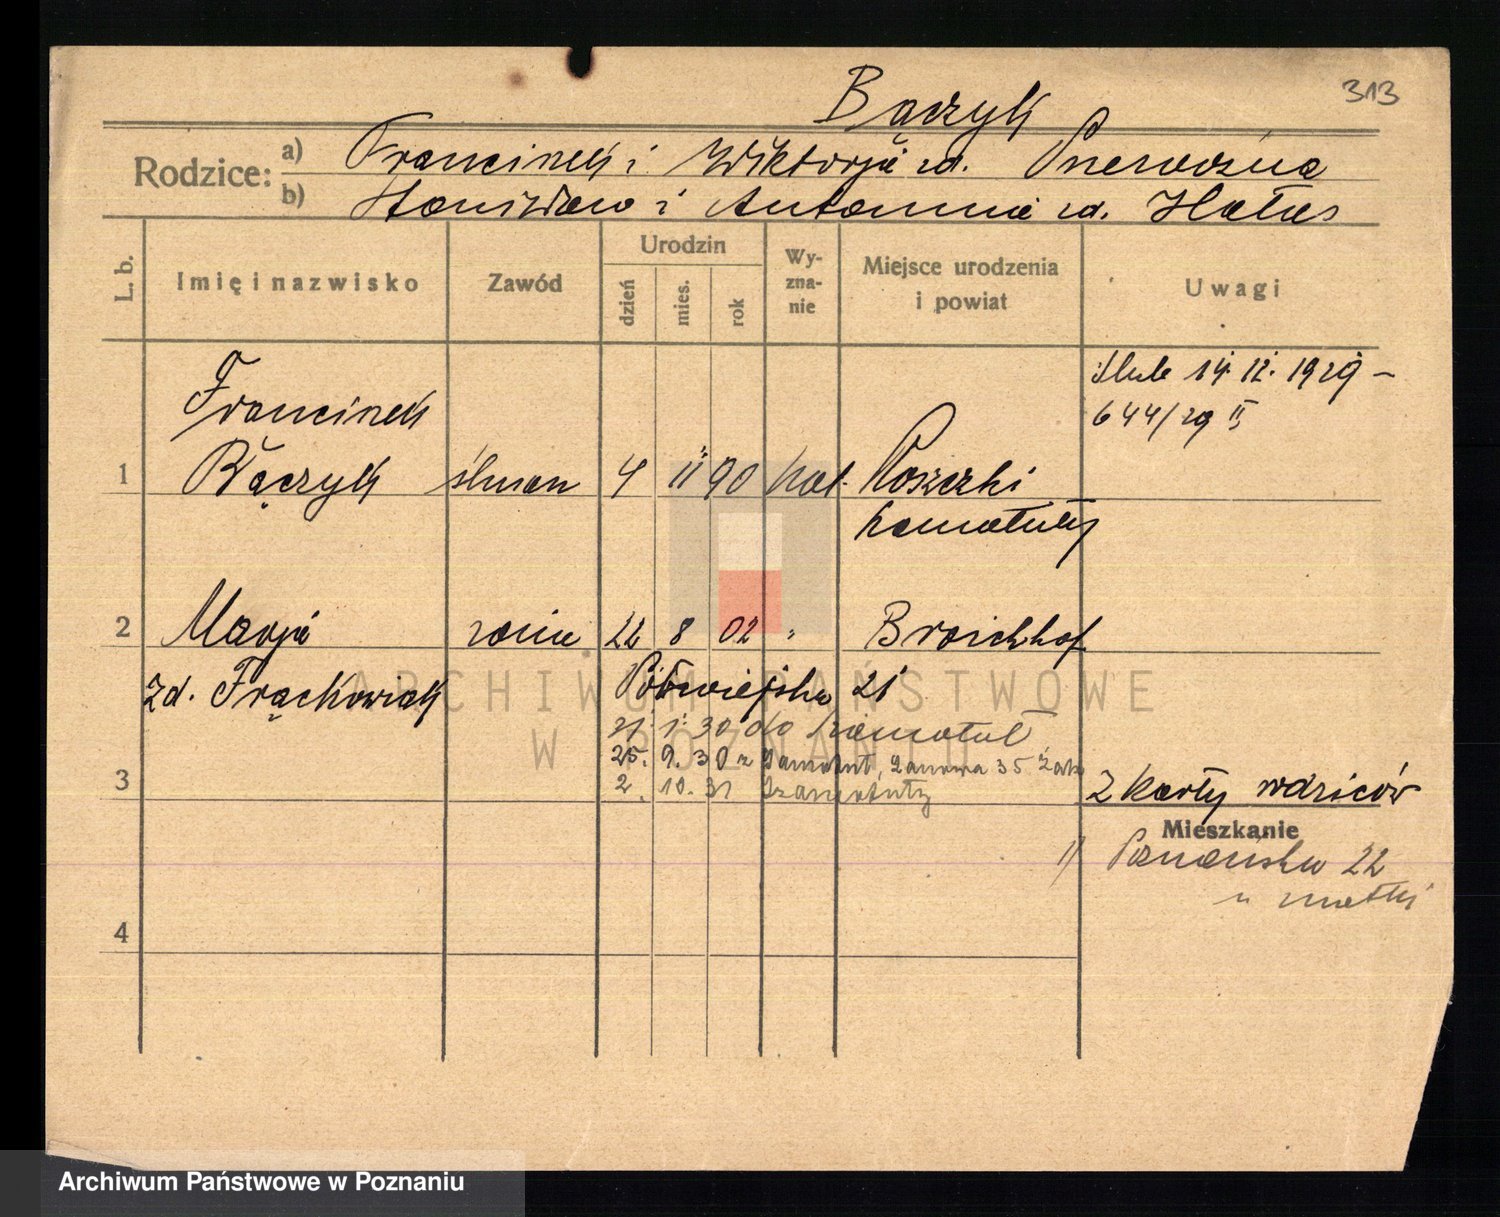 313
Bączyk
Rodzice: a) Franciszek i Wiktorja zd.
b) Stanisław i Antonina zd. Hałas
L. b.
Imię i nazwisko
Zawód
Urodzin
dzień
mies.
rok
Wy-
zna-
nie
Miejsce urodzenia
i powiat
Uwagi
ślub 14. 12. 1929 –
644/29 II
Franciszek
1 Bączyk ślusarz 4 11 90 kat.
Szamotuły
2 Marja żona 22 8 02 " Broichhof
zd. Frąckowiak
Półwiejska 21
1. 30 do Szamotuł
25. 9. 30 z Szamotuł, 35
2. 10. 31 Szamotuły
3
Z karty rodziców
Mieszkanie
1) Poznańska 22
u matki
4
ARCHIWUM PAŃSTWOWE
W POZNANIU
Archiwum Państwowe w Poznaniu